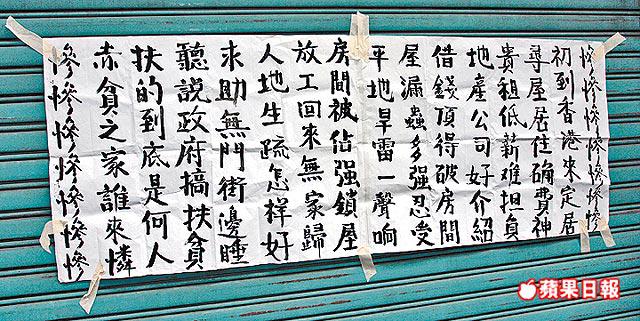 慘慘慘慘慘慘慘
初到香港來定居
尋屋居住确費神
貴租低薪难担負
地產公司好介紹
借錢頂得破房間
屋漏蟲多强忍受
平地旱雷一聲响
房間被佔强鎖屋
放工回來無家歸
人地生疏怎样好
求助無門街邊睡
聽說政府搞扶貧
扶的到底是何人
赤貧之家誰來憐
慘慘慘慘慘慘慘
蘋果日報